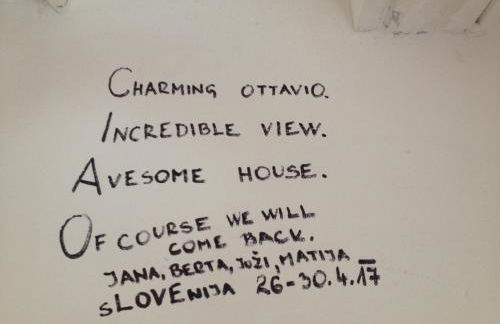 CHARMING OTTAVIO.
INCREDIBLE VIEW.
AVESOME HOUSE.
OF COURSE WE WILL
COME BACK.
JANA, BERTA, JOŽI, MATIJA
SLOVENIJA 26-30.4.17